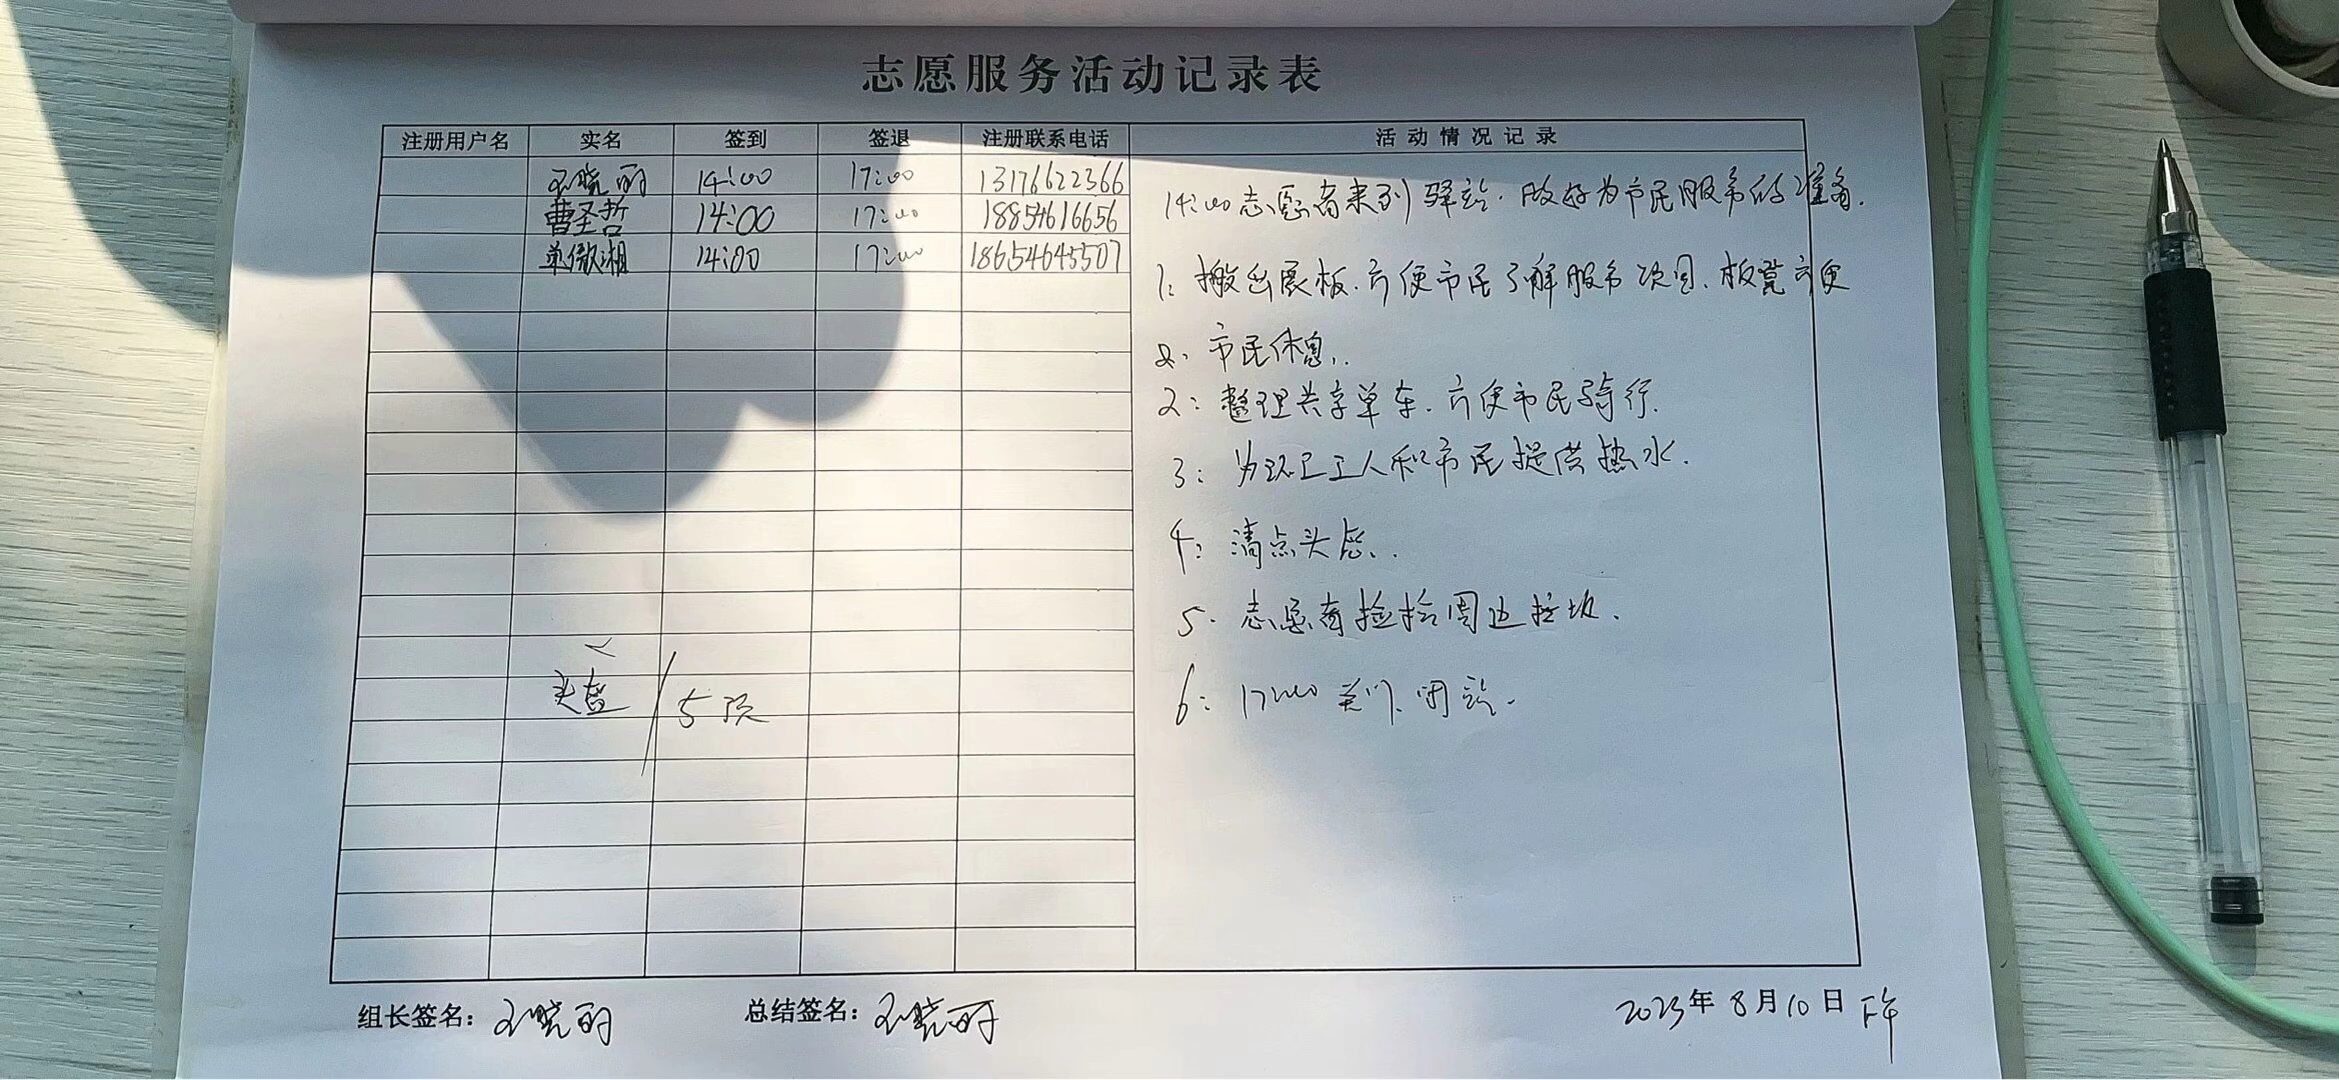 志愿服务活动记录表
注册用户名 实名 签到 签退 注册联系电话 活动情况记录
王晓丽 14:00 17:00 13176622366
曹圣哲 14:00 17:00 18854616656
单傲湘 14:00 17:00 18654645507
14:00志愿者来到驿站.做好为市民服务的准备.
1: 搬出展板.方便市民了解服务项目.板凳方便
市民休息..
2: 整理共享单车.方便市民骑行.
3: 为环卫工人和市民提供热水.
4: 清点头盔..
5. 志愿者捡拾周边垃圾.
6: 17:00 关门.闭站.
头盔 / 5顶
组长签名: 王晓丽 总结签名: 王晓丽 2023年8月10日 下午